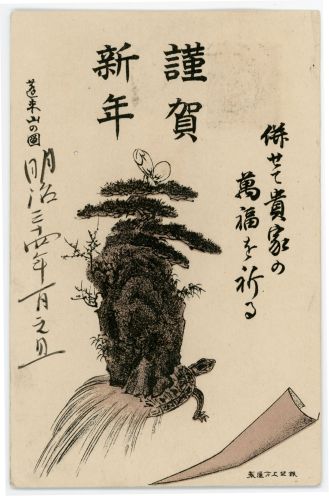 謹賀
新年
併せて貴家の
萬福を祈る
蓬来山の図
明治三十四年一月之旦